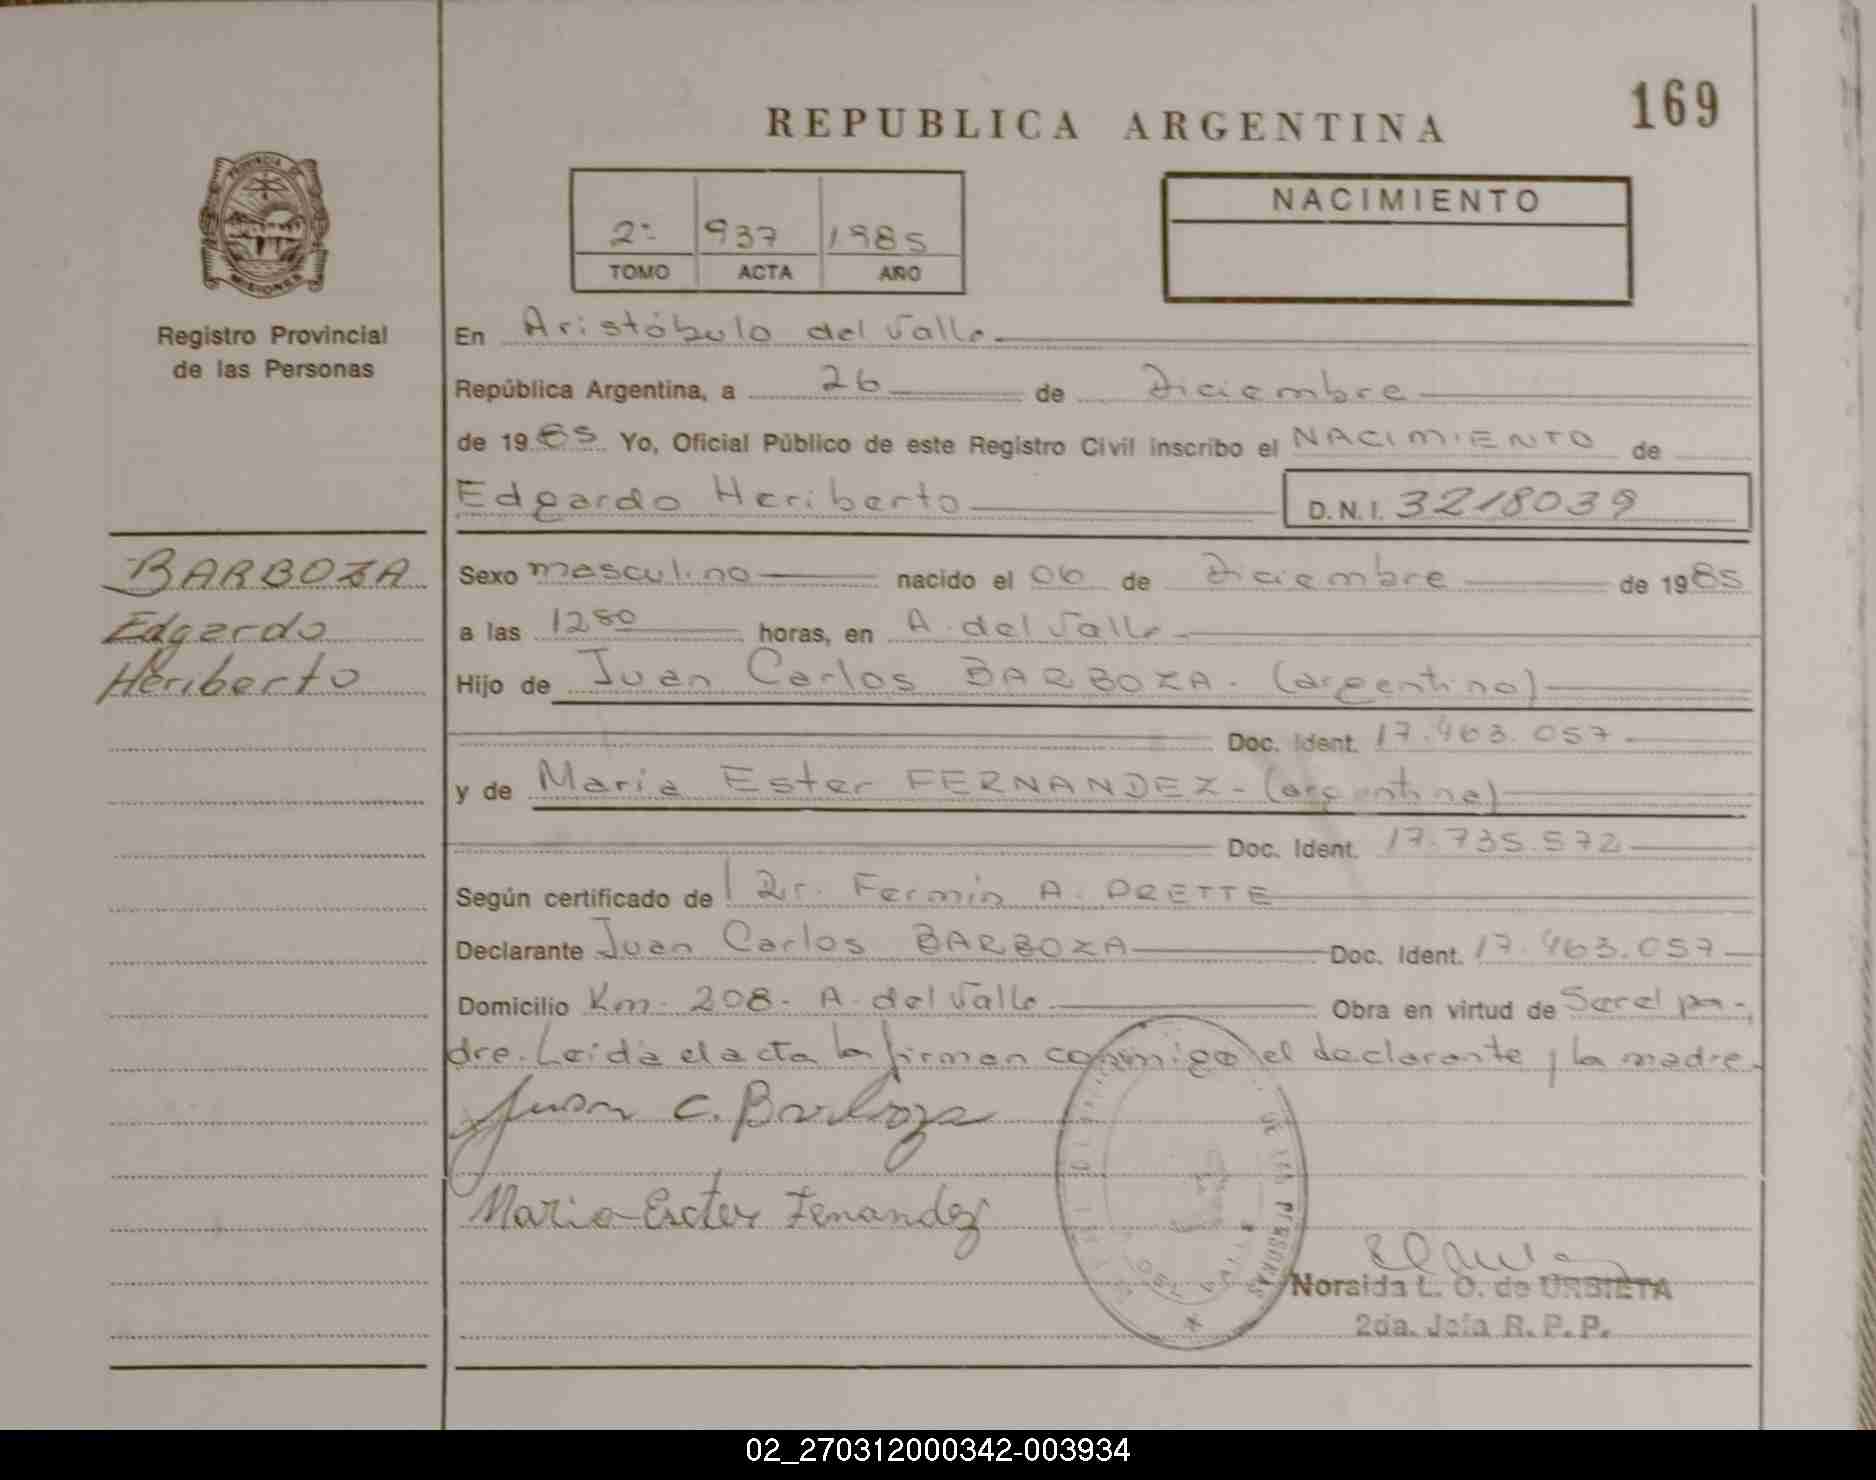 169
REPUBLICA ARGENTINA
PROVINCIA DE
MISIONES
Registro Provincial
de las Personas
2º 937 1985
TOMO ACTA AÑO
NACIMIENTO
En Aristóbulo del Valle
República Argentina, a 26 de Diciembre
de 1985 Yo, Oficial Público de este Registro Civil inscribo el NACIMIENTO de
Edgardo Heriberto D.N.I. 3218039
BARBOZA
Edgardo
Heriberto
Sexo masculino nacido el 06 de Diciembre de 1985
a las horas, en A. del Valle
Hijo de Juan Carlos BARBOZA. (argentino)
Doc. Ident. 17.463.057
y de Maria Ester FERNANDEZ - (argentina)
Doc. Ident. 17.735.572
Según certificado de Dr. Fermin A. PRETTE
Declarante Juan Carlos BARBOZA Doc. Ident. 17.463.057
Domicilio Km. 208. A. del Valle Obra en virtud de Ser el pa-
dre. Leida el acta la firman conmigo el declarante y la madre.
Juan C. Barboza
Maria Ester Fernandez
DE LAS PERSONAS
Noraida L. O. de URBIETA
2da. Jefa R. P. P.
02_270312000342-003934